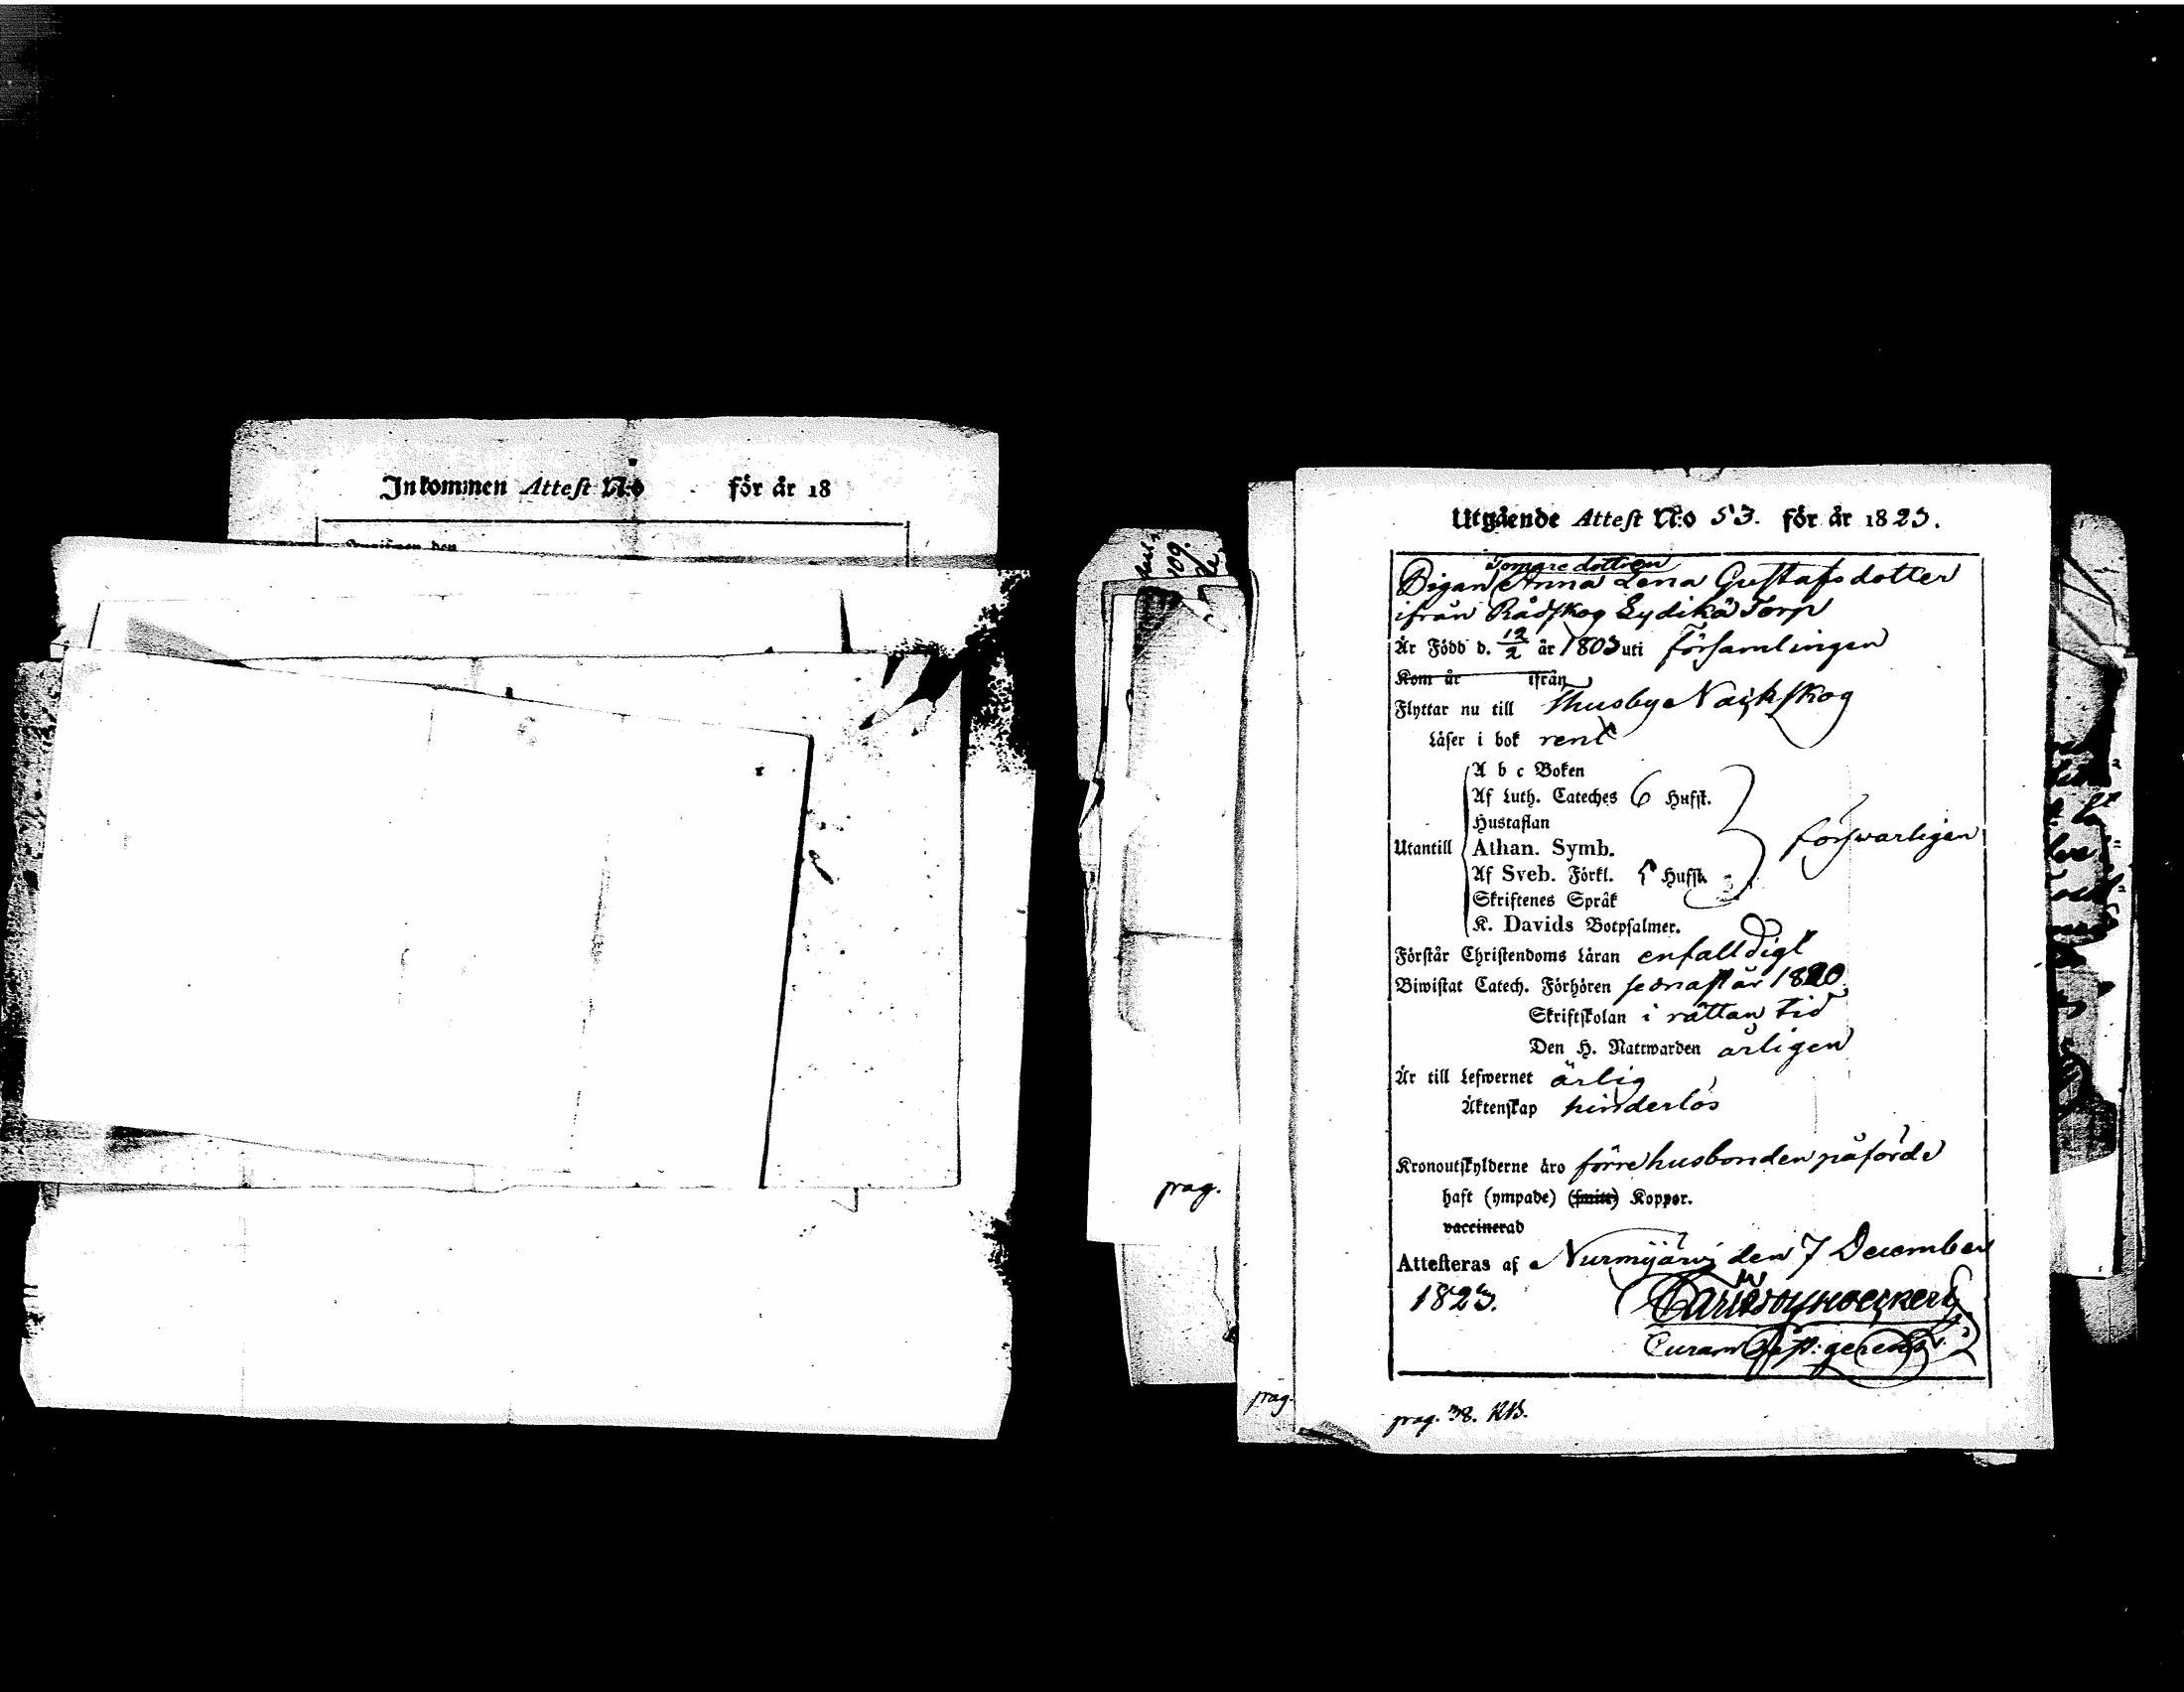 Inkommen Attest N:o för år 18
prag.
prag.
109.
Utgående Attest N:o 53. för år 1823.
Tomare dottren
Pigan Anna Lena Gustafsdotter
ifrån Rådskog Lydikä Torp
Är Född d. 12/2 år 1803 uti församlingen
Kom år ifrån
Flyttar nu till Thusby Nackskog
Läser i bok rent
A b c Boken
Af Luth. Cateches 6 Hufst.
Hustaflan
Utantill Athan. Symb. försvarligen
Af Sveb. Förkl. Hufst.
Skriftenes Språk
K. Davids Botpsalmer.
Förstår Christendoms Läran enfalldigt
Biwistat Catech. Förhören sednast år 1820
Skriftskolan i rättan tid
Den H. Nattwarden årligen
Är till Lefwernet ärlig
Äktenskap hinderlös
Kronoutskylderne äro förre husbonden påförde
haft (ympade) (smitt) Koppor.
vaccinerad
Attesteras af Nurmijärvi den 7 December
1823.
Curam Past: gerens
prag. 38. RB.